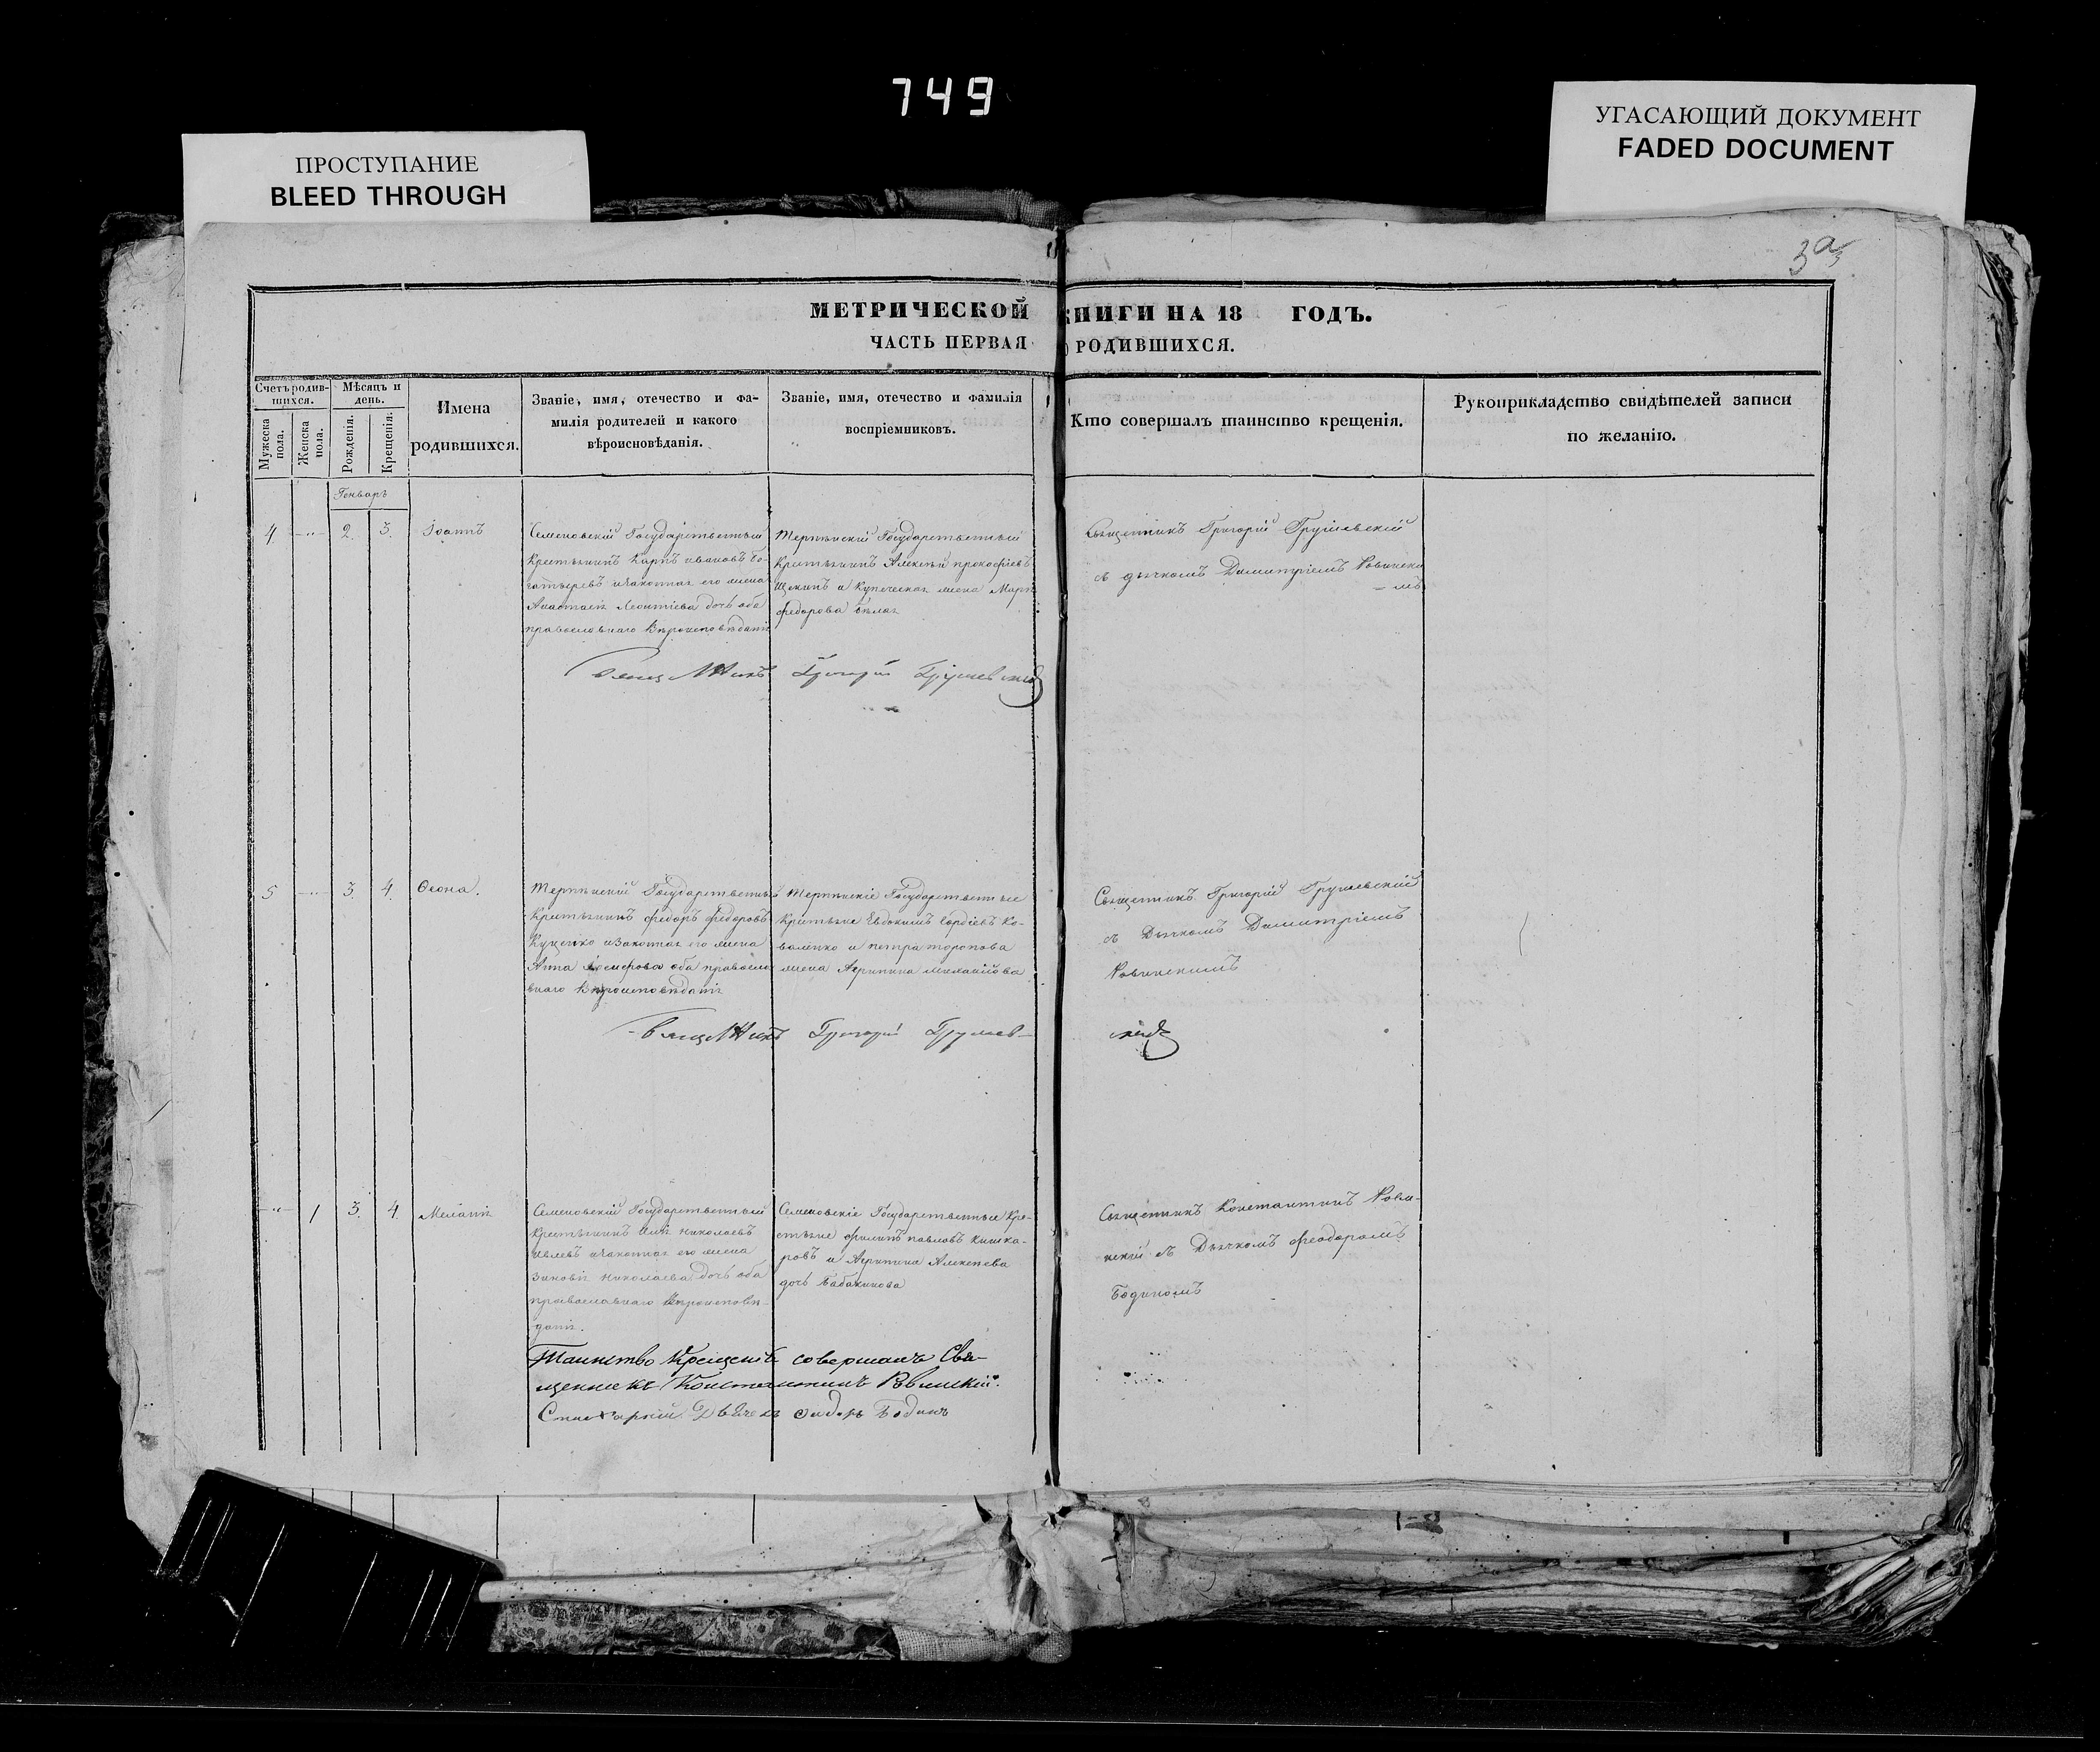 749
ПРОСТУПАНИЕ
BLEED THROUGH
УГАСАЮЩИЙ ДОКУМЕНТ
FADED DOCUMENT
МЕТРИЧЕСКОЙ КНИГИ НА 18 ГОДЪ.
ЧАСТЬ ПЕРВАЯ О РОДИВШИХСЯ.
Счетъ родив-
шихся.
Мужеска
пола.
Женска
пола.
Мѣсяцъ и
день.
Рожденія.
Крещенія.
Имена
родившихся.
Званіе, имя, отечество и фа-
милія родителей и какого
вѣроисновѣданія.
Званіе, имя, отечество и фамилія
воспріемниковъ.
Кто совершалъ таинство крещенія.
Рукоприкладство свидѣтелей записи
по желанію.
Генварь
4 -"- 2. 3. Іоаннъ
Семеновскій Государственный
Крестьянинъ Карпъ ивановъ Бо-
гатыревъ изаконная его жена
Анастасія Леонтіева дочь оба
православнаго Вѣроисповѣданія
Терпѣнскій Государственный
Крестьянинъ Алексѣй прокофіевъ
Щекинъ и Купеческая жена
федорова бѣлая
Священникъ Григорій Грушевскій
съ дьячкомъ Димитріемъ
Священникъ Григорій Грушевскій
5 -"- 3. 4. Ѳеона.
Терпѣнскій Государственный
Крестьянинъ федоръ федоровъ
Куценко изаконная его жена
Анна оба правосла
внаго Вѣроисповѣданія
Терпѣнскіе Государственные
Крестьяне Евдокимъ Гордіевъ Ко-
валенко и петра торопова
жена Агрипина михайлова
Священникъ Григорій Грушевскій
съ Дьячкомъ Димитріемъ
Ровинскимъ
Священникъ Григорій Грушев-
скій
-"- 1 3. 4. Меланія
Семеновскій Государственный
Крестьянинъ николаевъ
Ивлевъ изаконная его жена
Зиновія николаева дочь оба
православнаго Вѣроисповѣ-
данія.
Семеновскіе Государственные Кре-
стьяне филипъ павловъ Кишка-
ровъ и Агрипина Алексѣева
дочь Бабакинова
Священникъ Константинъ Рови-
нскій съ Дьячкомъ феодоромъ
Бодинымъ
Таинство Крещенія совершалъ Свя-
щенникъ Константинъ Ровинскій.